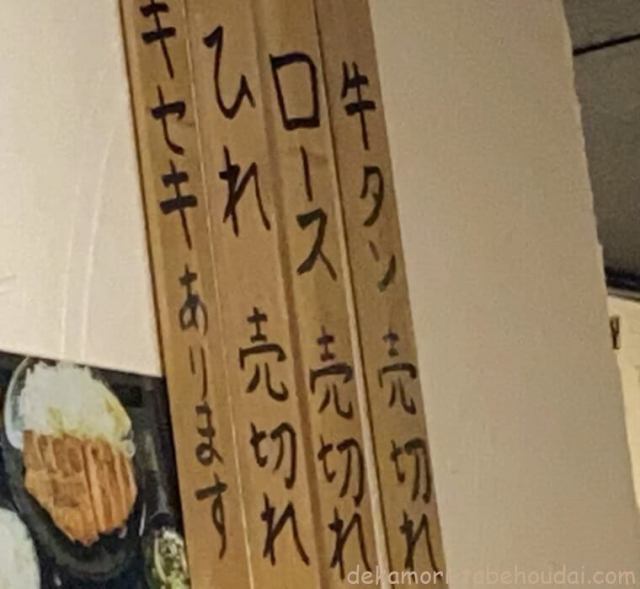 牛タン 売切れ
ロース 売切れ
ひれ 売切れ
キセキあります
dekamori-tabehoudai.com